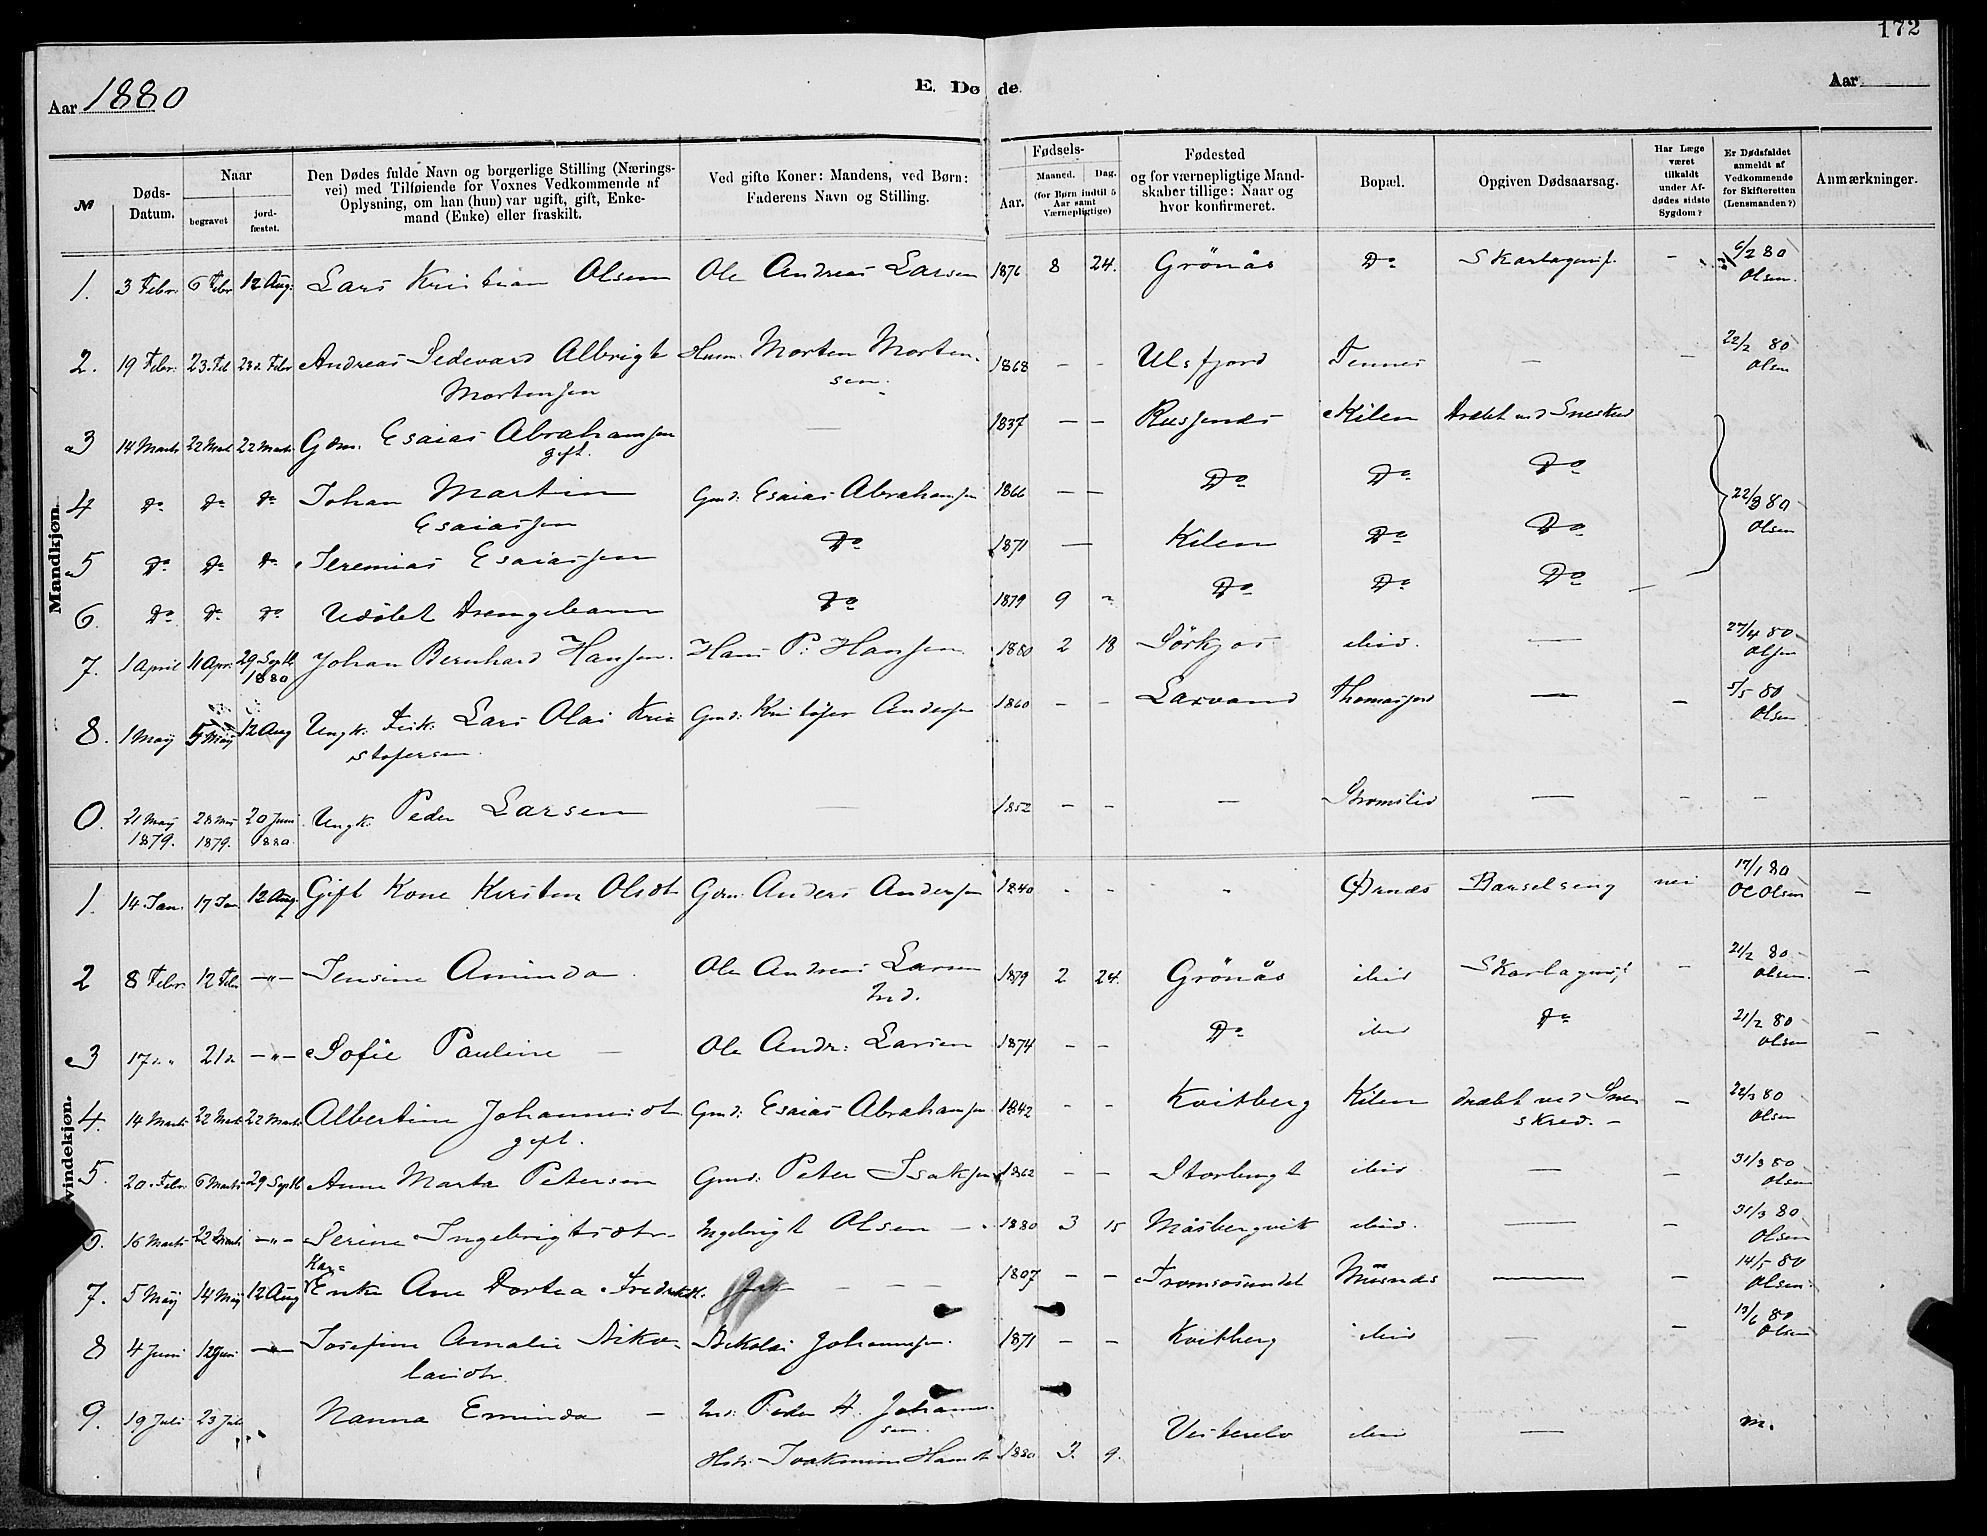 172
Aar 1880
E. Døde.
Aar
№
Døds-Datum.
Naar
begravet
jord-fæstet.
Den Dødes fulde Navn og borgerlige Stilling (Nærings-
vei) med Tilføiende for Voxnes Vedkommende af
Oplysning, om han (hun) var ugift, gift, Enke-
mand (Enke) eller fraskilt.
Ved gifte Koner: Mandens, ved Børn:
Faderens Navn og Stilling.
Fødsels-
Aar.
Maaned.
Dag.
(for Børn indtil 5
Aar samt
Værnepligtige)
Fødested
og for værnepligtige Mand-
skaber tillige: Naar og
hvor konfirmeret.
Bopæl.
Opgiven Dødsaarsag.
Har Læge
været
tilkaldt
under Af-
dødes sidste
Sygdom?
Er Dødsfaldet
anmeldt af
Vedkommende
for Skifteretten
(Lensmanden?)
Anmærkninger.
Mandkjøn.
1. 3 Febr. 6 Febr 12 Aug. Lars Kristian Olsen Ole Andreas Larsen 1876 8 24. Grönås Do - 6/2 80
Olsen.
2. 19 Febr. 23. Feb 23 d. Febr Andreas Sedevard Albrigt Husm. Morten Morten- 1868 - - Ulsfjord Tennes - - 22/2 80
Mortensen sen. Olsen
3 14 Marts 22 Mart 22 Marts Gdm. Esaias Abrahamsen - 1837 - - Kilen Dræbt ved
gift.
4 Do Do Do Johan Martin Gmd: Esaias Abrahamsen 1866 - - Do Do Do 22/3 80
Esaiassen Olsen
5 Do Do Do Jeremias Esaiassen Do 1871 - Kilen Do Do
6. Do Do Do Udøbt Drengebarn Do 1879 9 - Do Do Do
7. 1 April 11 Apr. 29 Septb Johan Bernhard Hansen. Hans P. Hansen 1880 2 18 Sörkjos ibid. - 27/4 80
1880 Olsen
8. 1 Maij 5 Maij 12 Aug Ungk. Fisk. Lars Olai Kri- Gmd: Kristofer Andersen 1860 - - Laxvand Thomasjord - - 5/5 80
stofersen. Olsen
0. 21 Maij 28 Mai 20 Juni Ungk. Peder Larsen - 1852 - - - Stromslid - - -
1879. 1879. 1880
Kvindekjøn.
1. 14 Jan. 17 Jan 12 Aug. Gift Kone Kirsten Olsdt Gdm. Anders Andersen 1840 - - - Ørnæs Barselseng nei 17/1 80
Ol Olsen -
2 8 Febr 12 Febr -"- Jensine Aminda Ole Andreas Larsen 1879 2 24. Grönås ibid - 21/2 80
Ind. Olsen. -
3 17 d. " 21 d. -"- Sofie Pauline - Ole Andr: Larsen 1874 - - Do ibid Do 21/2 80
Olsen -
4. 14 Marts 22 Marts 22 Marts Albertine Johannesdt. Gmd: Esaias Abrahamsen 1842 - - Kvitberg Kilen dræbt ved Sne- - 22/3 80
gift. skred. - Olsen
5. 20. Febr. 6 Marts 29 Septb. Anne Marta Petersen Gmd: Peter Isaksen 1862 - - ibid - - 31/3 80
Olsen
6. 16 Marts 22 Marts -"- Serine Ingebrigtsdtr. Ingebrigt Olsen - 1880 3 15 Måsbergvik ibid. - - 31/3 80
Olsen
7. 5 Maij 14 Maij 12 Aug Enke Ane Dortea - - - 1807 - - Tromsosundet - - 14/5 80
Olsen
8 4 Juni 12 Juni -"- Josefine Amalie Niko- Nikolai Johannesen. 1871 - - Kvitberg ibid - - 13/6 80
laidtr. Olsen
9. 19 Juli 23 Juli Nanna Eminda - Ind. Peder A. Johanne- ibid - m.
sen.
1880 3. 9.